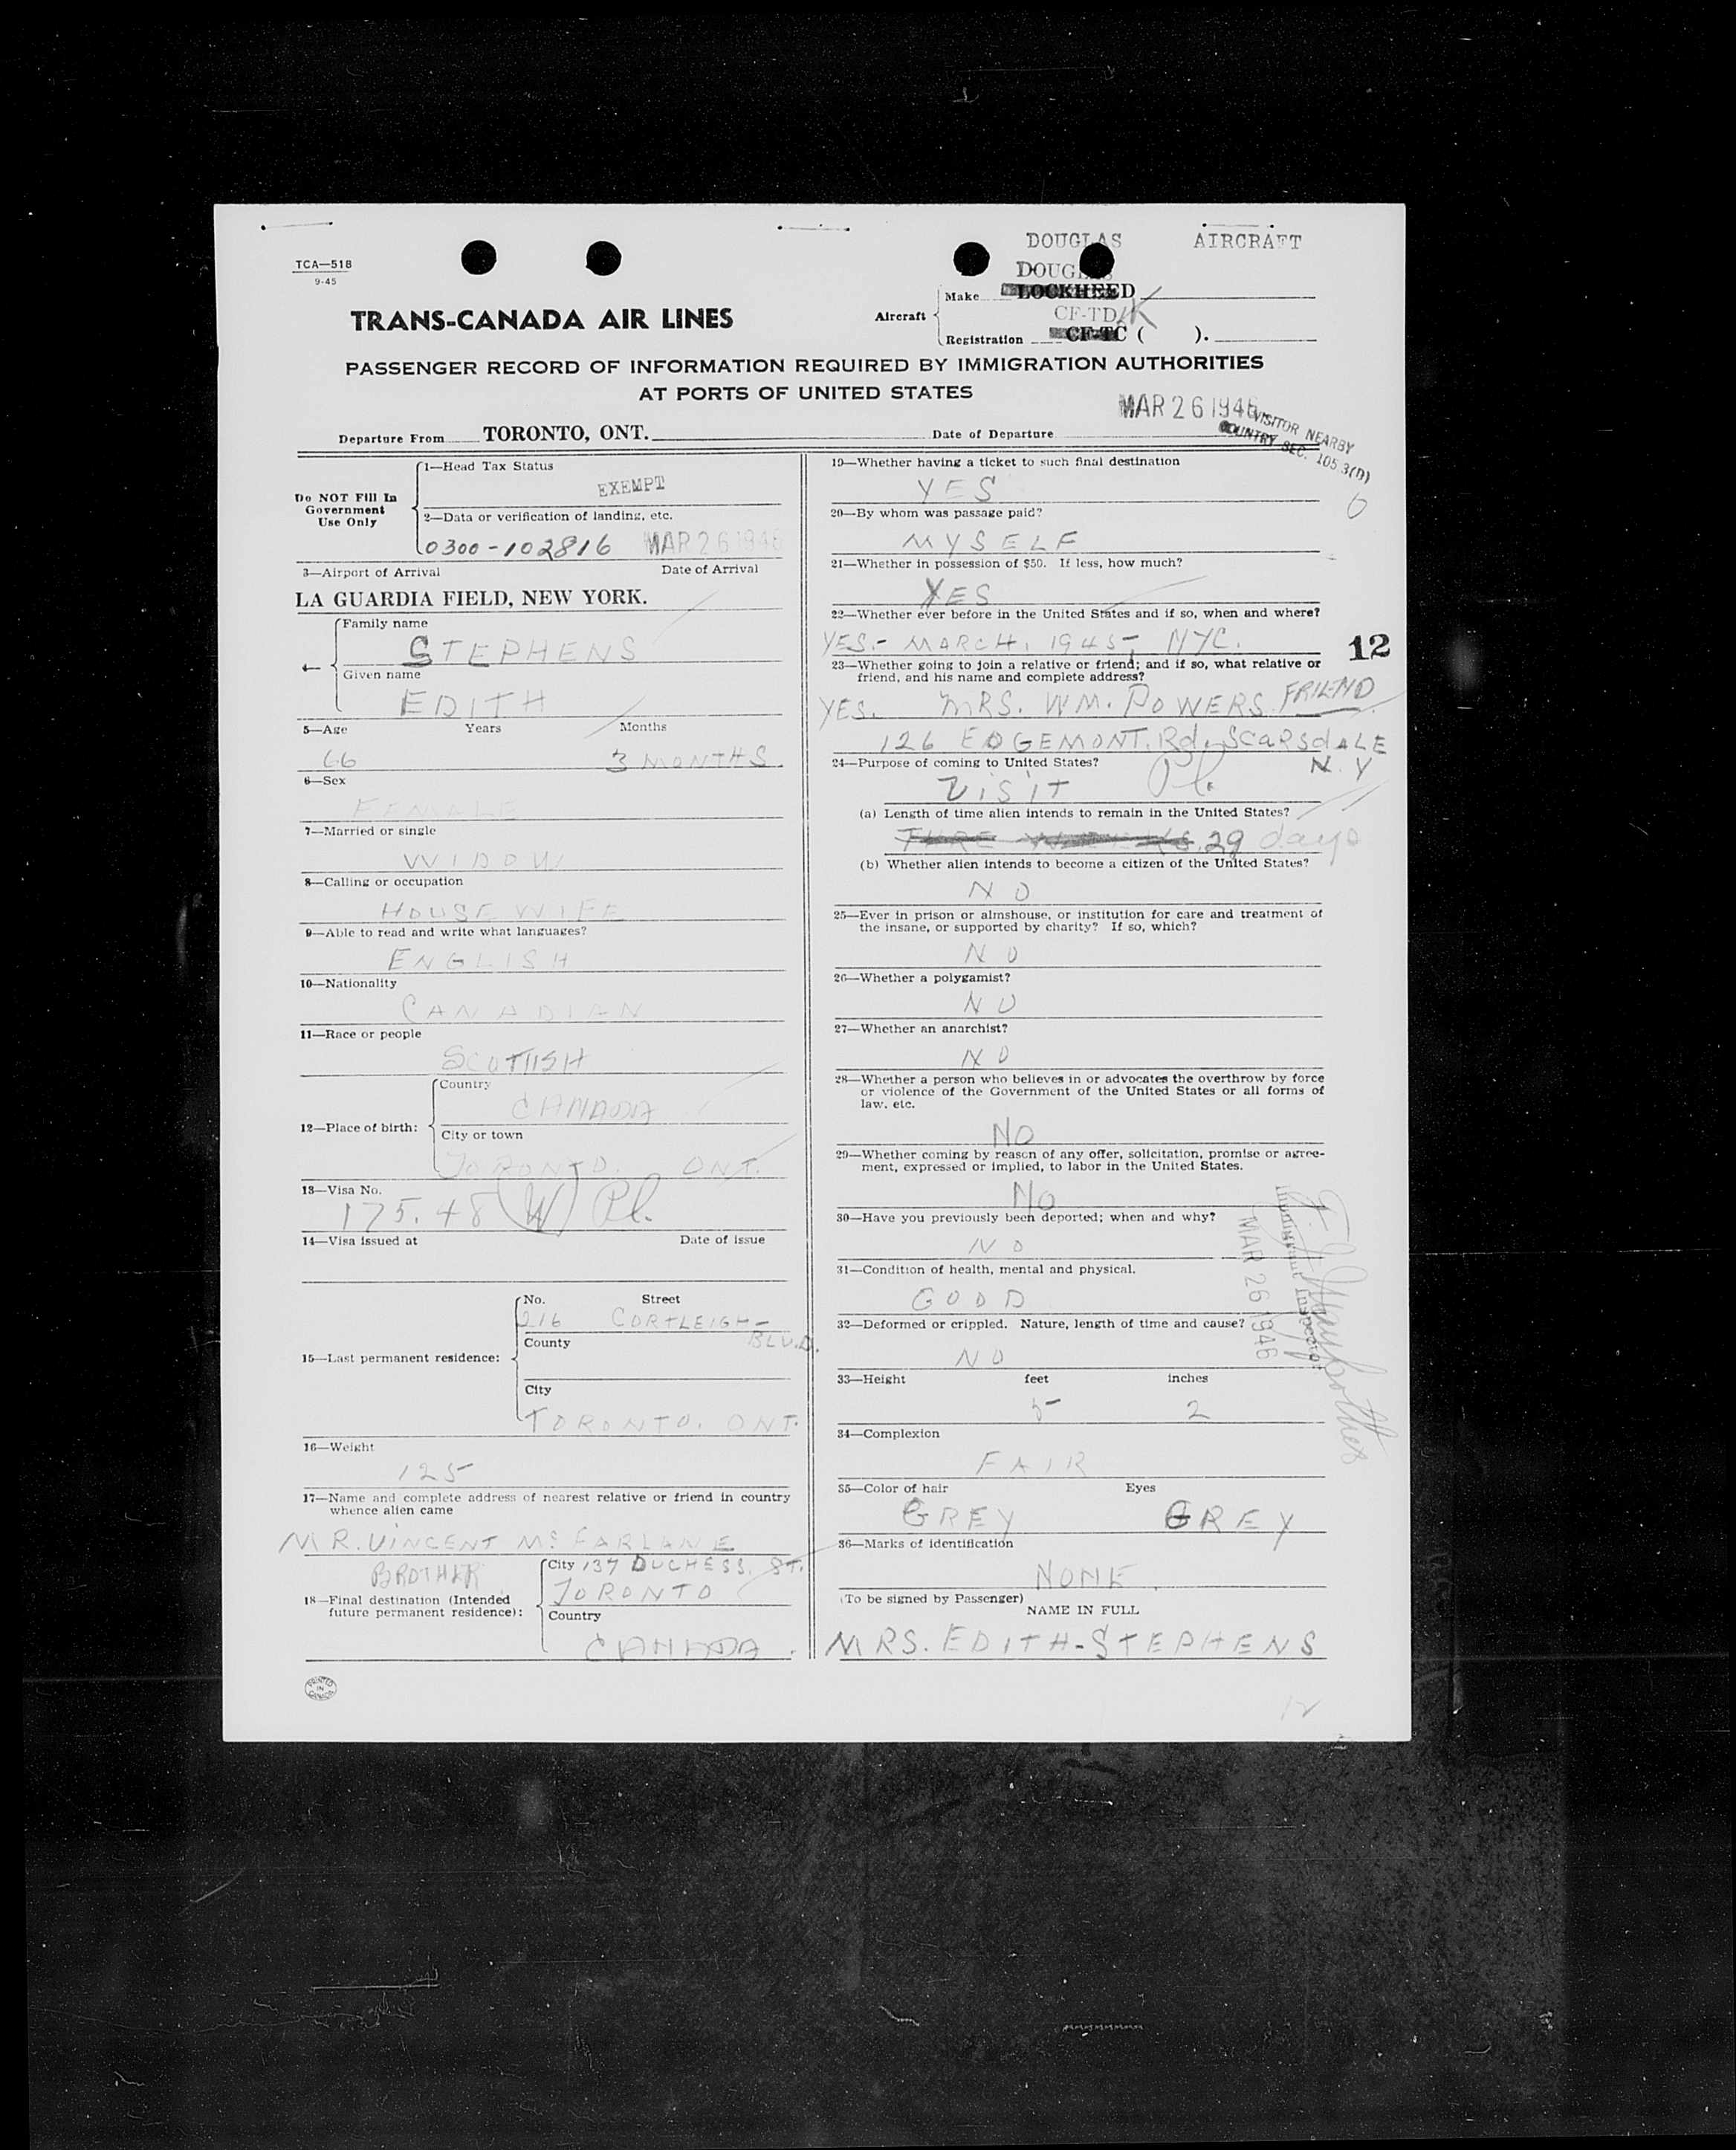 DOUGLAS AIRCRAFT
TCA—518
9-45
DOUGLAS
Make LOCKHEED
TRANS-CANADA AIR LINES
Aircraft
CF-TDK
Registration CF-TC ( ).
PASSENGER RECORD OF INFORMATION REQUIRED BY IMMIGRATION AUTHORITIES
AT PORTS OF UNITED STATES
MAR 26 1946
VISITOR NEARBY
COUNTRY SEC. 105.3(D)
Departure From TORONTO, ONT. Date of Departure
Do NOT Fill In
Government
Use Only
1—Head Tax Status
EXEMPT
2—Data or verification of landing, etc.
0300-102816 MAR 26 1946
3—Airport of Arrival Date of Arrival
LA GUARDIA FIELD, NEW YORK.
4— Family name
STEPHENS
Given name
EDITH
5—Age Years Months
66 3 MONTHS.
6—Sex
FEMALE
7—Married or single
WIDOW
8—Calling or occupation
HOUSEWIFE
9—Able to read and write what languages?
ENGLISH
10—Nationality
CANADIAN
11—Race or people
SCOTTISH
12—Place of birth:
Country
CANADA
City or town
TORONTO. ONT.
13—Visa No.
175.48 (W) Pl.
14—Visa issued at Date of issue
15—Last permanent residence:
No. Street
216 CORTLEIGH-
County BLVD.
City
TORONTO. ONT.
16—Weight
125
17—Name and complete address of nearest relative or friend in country
whence alien came
MR. VINCENT McFARLANE
BROTHER
City 137 DUCHESS. ST.
TORONTO
18—Final destination (Intended
future permanent residence):
Country
CANADA.
PRINTED
IN
CANADA
19—Whether having a ticket to such final destination
YES
0
20—By whom was passage paid?
MYSELF
21—Whether in possession of $50. If less, how much?
YES
22—Whether ever before in the United States and if so, when and where?
YES.- MARCH. 1945, NYC.
12
23—Whether going to join a relative or friend; and if so, what relative or
friend, and his name and complete address?
YES. MRS. WM. POWERS. FRIEND
126 EDGEMONT. Rd, SCARSDALE
N.Y
24—Purpose of coming to United States?
VISIT Pl.
(a) Length of time alien intends to remain in the United States?
29 days
(b) Whether alien intends to become a citizen of the United States?
NO
25—Ever in prison or almshouse, or institution for care and treatment of
the insane, or supported by charity? If so, which?
NO
26—Whether a polygamist?
NO
27—Whether an anarchist?
NO
28—Whether a person who believes in or advocates the overthrow by force
or violence of the Government of the United States or all forms of
law, etc.
NO
29—Whether coming by reason of any offer, solicitation, promise or agree-
ment, expressed or implied, to labor in the United States.
NO
30—Have you previously been deported; when and why?
NO
31—Condition of health, mental and physical.
GOOD
32—Deformed or crippled. Nature, length of time and cause?
NO
MAR 26 1946
Immigrant Inspector
33—Height feet inches
5 2
34—Complexion
FAIR
35—Color of hair Eyes
GREY GREY
36—Marks of identification
NONE.
(To be signed by Passenger)
NAME IN FULL
MRS. EDITH-STEPHENS
12